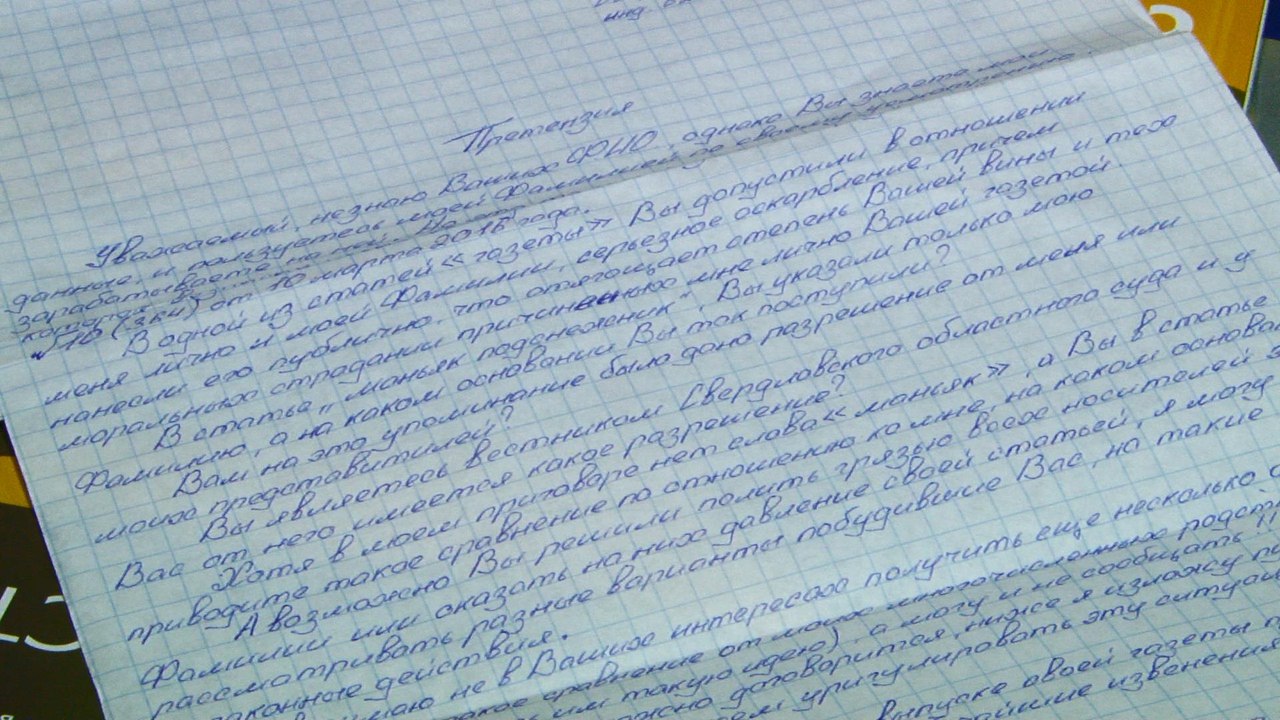 инд.
Претензия
Уважаемый, незнаю Ваших ФИО, однако Вы знаете мои
данные, и пользуетесь моей Фамилией по своему усмотрению
зарабатываете на ней.
от 10 марта 2015 года.
В одной из статей «газеты» Вы допустили в отношении
меня лично и моей Фамилии, серьезное оскарбление, причем
нанесли его публично, что отягощает степень Вашей вины и тех
моральных страданий причиненных мне лично Вашей газетой.
В статье „маньяк подснежник", Вы указали только мою
Фамилию, а на каком основании Вы так поступили?
Вам на это упоминание было дано разрешение от меня или
моих представитилей?
Вы являетесь вестником Свердловского областного суда и у
Вас от него имеется какое разрешение?
Хотя в моем приговоре нет слова «маньяк», а Вы в статье
приводите такое сравнение по отношению ко мне, на каком основа
А возможно Вы решили полить грязью всех носителей э
Фамилии или оказать на них давление своей статьей, я могу
рассматривать разные варианты побудившие Вас, на такие
законные действия.
маю не в Ваших интересах получить еще несколько
такое сравнение от моих многочисленных родст
им такую идею), а могу и не сообщать !!
можно договорится, ниже я изложу
ем уригулировать эту ситуац
выпуске своей газеты
извенения